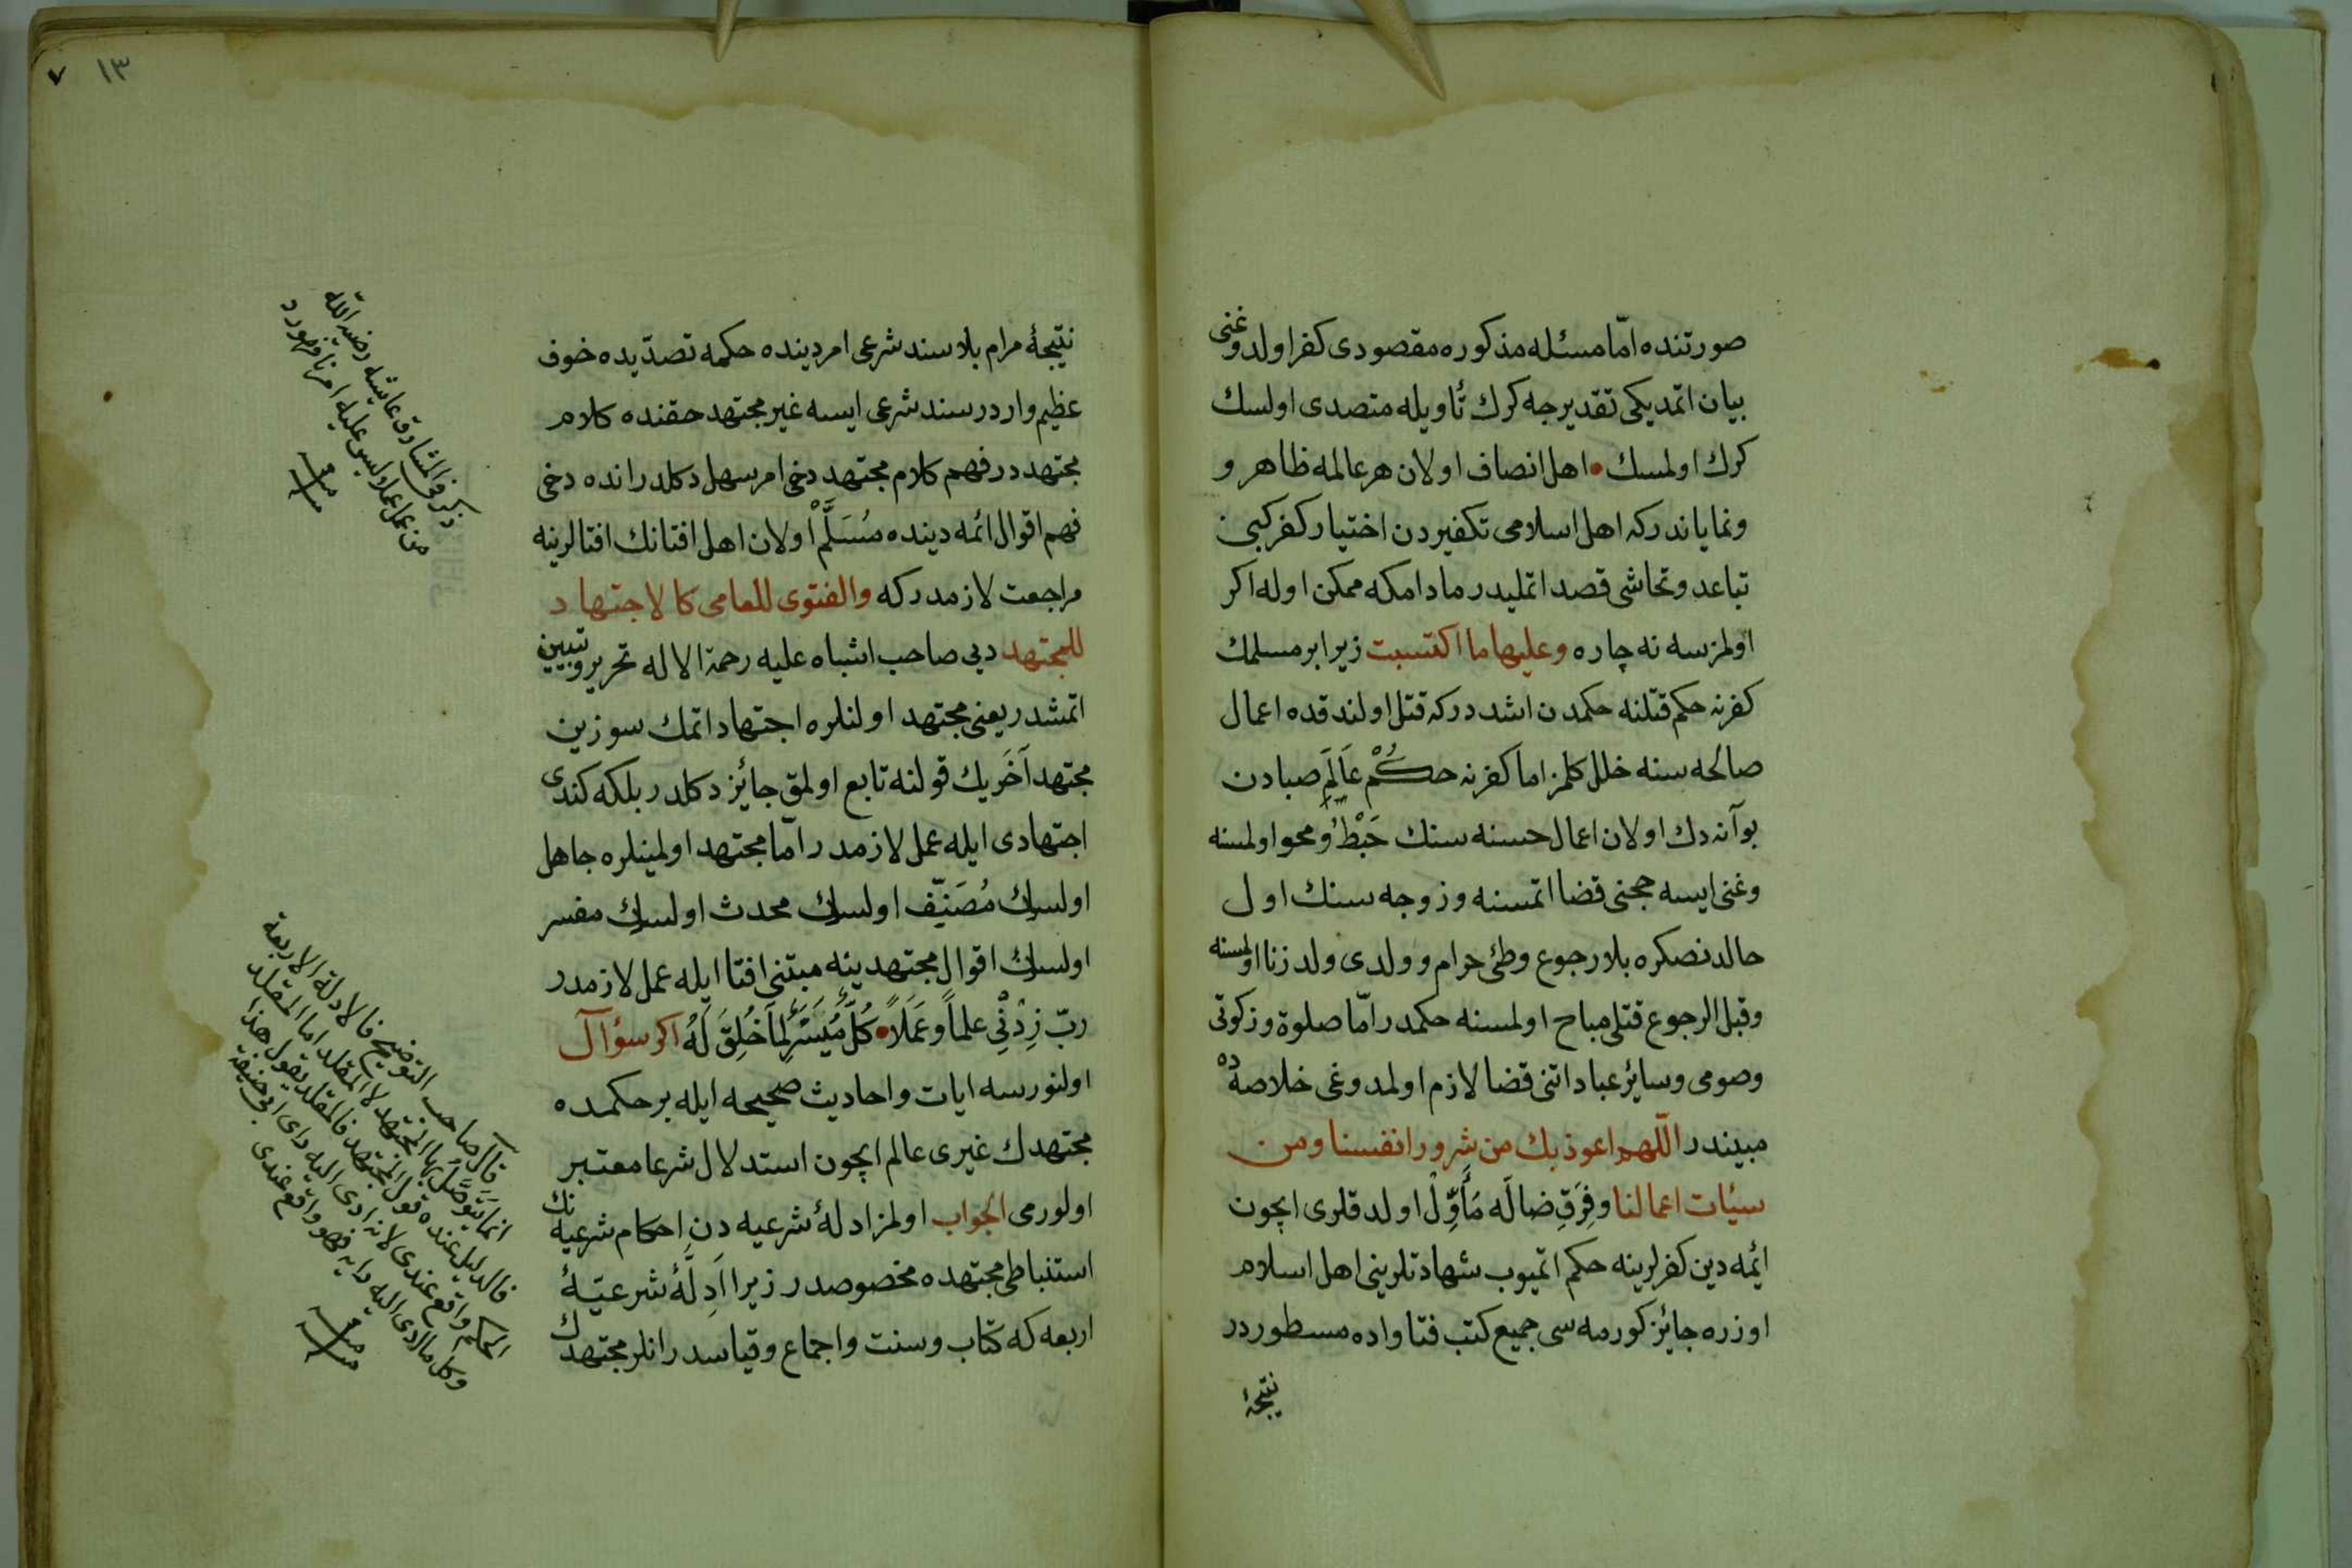 صورتنده امّا مسئله مذكوره مقصودى كفر اولدوغنى
بيان اتمديكى تقديرجه كرك تأويله متصدى اولسك
كرك اولمسك • اهل انصاف اولان هر عالمه ظاهر و
ونماياندركه اهل اسلامى تكفيردن اختيار كفر كبى
تباعد وتحاشى قصد اتمليدر مادامكه ممكن اوله اكر
اولمزسه نه چاره وعليها ما اكتسبت زيرا بر مسلمك
كفرنه حكم قتلنه حكمدن اشددركه قتل اولندقده اعمال
صالحه سنه خلل كلمز اما كفرنه حكم عالَمِ صبادن
بو آنه دك اولان اعمال حسنه سنك حَبْطُ ومحو اولمسنه
وغنى ايسه حجنى قضا اتمسنه وزوجه سنك اول
حالدنصكره بلا رجوع وطئ حرام وولدى ولد زنا اولمسنه
وقبل الرجوع قتلى مباح اولمسنه حكمدر امّا صلوة وزكوتى
وصومى وسائر عباداتنى قضا لازم اولمدوغى خلاصه ده
مبيندر اللّهم اعوذ بك من شرور انفسنا ومن
سيئات اعمالنا وفِرَقِ ضالّه مَأَوِّلْ اولدقلرى ايچون
ائمه دين كفرلرينه حكم اتميوب شهادتلرينى اهل اسلام
اوزره جائز كورمه سى جميع كتب فتاواده مسطوردر
نتيجۀ
١٣ ٧
نتيجۀ مرام بلا سند شرعى امر دينده حكمه تصدّيده خوف
عظيم واردر سند شرعى ايسه غير مجتهد حقنده كلام
مجتهددر فهم كلام مجتهد دخى امر سهل دكلدر انده دخى
فهم اقوال ائمه دينده مُسَلَّمْ اولان اهل افتانك افتالرينه
مراجعت لازمدركه والفتوى للعامى كالاجتهاد
للمجتهد ديى صاحب اشباه عليه رحمة الاله تحرير وتبيين
اتمشدر يعنى مجتهد اولنلره اجتهاد اتمك سوزين
مجتهد آخَريك قولنه تابع اولمق جائز دكلدر بلكه كندى
اجتهادى ايله عمل لازمدر امّا مجتهد اولمينلره جاهل
اولسك مُصَنِّف اولسك محدث اولسك مفسر
اولسك اقوال مجتهدينه مبتنى افتا ايله عمل لازمدر
ربّ زِدْنِي علماً وعَمَلاً • كُلٌّ مُيَسَّرٌ لِمَا خُلِقَ لَهُ اكر سؤال
اولنورسه ايات واحاديث صحيحه ايله بر حكمده
مجتهدك غيرى عالم ايچون استدلال شرعا معتبر
اولورمى الجواب اولمز ادلۀ شرعيه دن احكام شرعيه نك
استنباطى مجتهده مخصوصدر زيرا اَدِلَّۀ شرعيّۀ
اربعه كه كتاب وسنت واجماع وقياسدر انلر مجتهدك
ذكر فى المشارق عايشه رضى الله
من عمل عملا وليس عليه امرنا فهو رد
منه
قال صاحب التوضيح فالادلة الاربعة
انما يتوصل بها المجتهد لا المقلد اما المقلد
فالدليل عنده قول المجتهد فالمقلد يقول هذا
الحكم واقع عندى لانه ادى اليه راى ابى حنيفة
وكل ما ادى اليه رايه فهو واقع عندى
منه